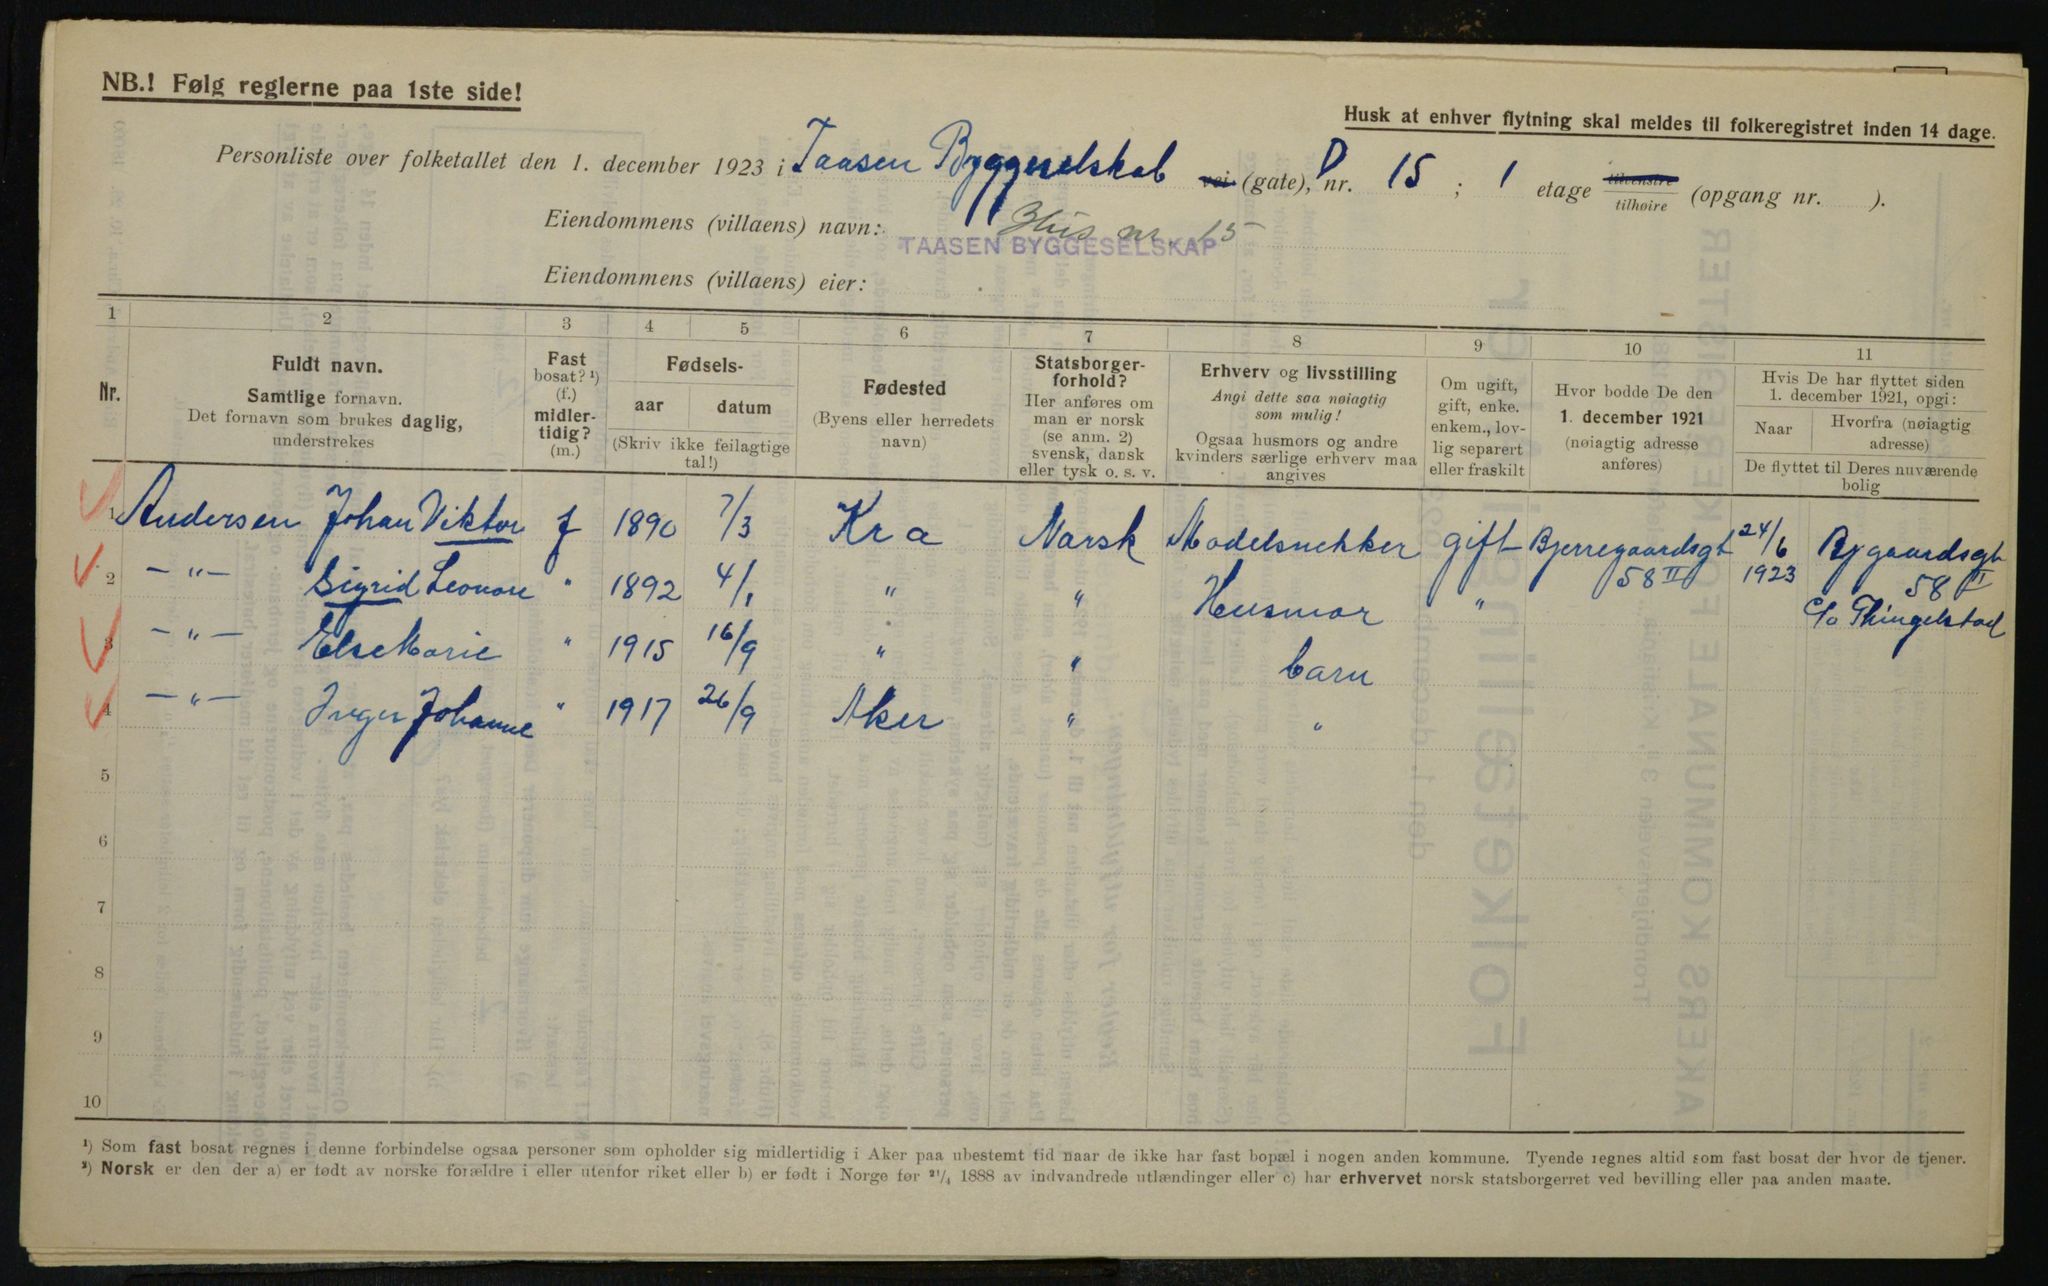 NB.! Følg reglerne paa 1ste side!
Husk at enhver flytning skal meldes til folkeregistret inden 14 dage.
Personliste over folketallet den 1. december 1923 i Taasen Byggeselskab vei (gate), D nr. 15 ; 1 etage tilvenstre tilhøire (opgang nr. ).
Eiendommens (villaens) navn: Hus nr. 15
TAASEN BYGGESELSKAP
Eiendommens (villaens) eier:
1 2 3 4 5 6 7 8 9 10 11
Nr.
Fuldt navn.
Samtlige fornavn.
Det fornavn som brukes daglig,
understrekes
Fast
bosat? ¹)
(f.)
midler-
tidig?
(m.)
Fødsels-
aar datum
(Skriv ikke feilagtige
tal!)
Fødested
(Byens eller herredets
navn)
Statsborger-
forhold?
Her anføres om
man er norsk
(se anm. 2)
svensk, dansk
eller tysk o. s. v.
Erhverv og livsstilling
Angi dette saa nøiagtig
som mulig!
Ogsaa husmors og andre
kvinders særlige erhverv maa
angives
Om ugift,
gift, enke.
enkem., lov-
lig separert
eller fraskilt
Hvor bodde De den
1. december 1921
(nøiagtig adresse
anføres)
Hvis De har flyttet siden
1. december 1921, opgi:
Naar Hvorfra (nøiagtig
adresse)
De flyttet til Deres nuværende
bolig
1 Andersen Johan Viktor f 1890 7/3 Kra Norsk Modelsnekker gift Bjerregaardsgt 58 II 24/6 1923 Bjgaardsgt 58 II
c/o Thingelstad
2 —"— Sigrid Leonore " 1892 4/1 " " Husmor "
3 —"— Else Marie " 1915 16/9 " " barn
4 —"— Inger Johanne " 1917 26/9 Aker " "
5
6
7
8
9
10
¹) Som fast bosat regnes i denne forbindelse ogsaa personer som opholder sig midlertidig i Aker paa ubestemt tid naar de ikke har fast bopæl i nogen anden kommune. Tyende regnes altid som fast bosat der hvor de tjener.
²) Norsk er den der a) er født av norske forældre i eller utenfor riket eller b) er født i Norge før ²¹/₄ 1888 av indvandrede utlændinger eller c) har erhvervet norsk statsborgerret ved bevilling eller paa anden maate.